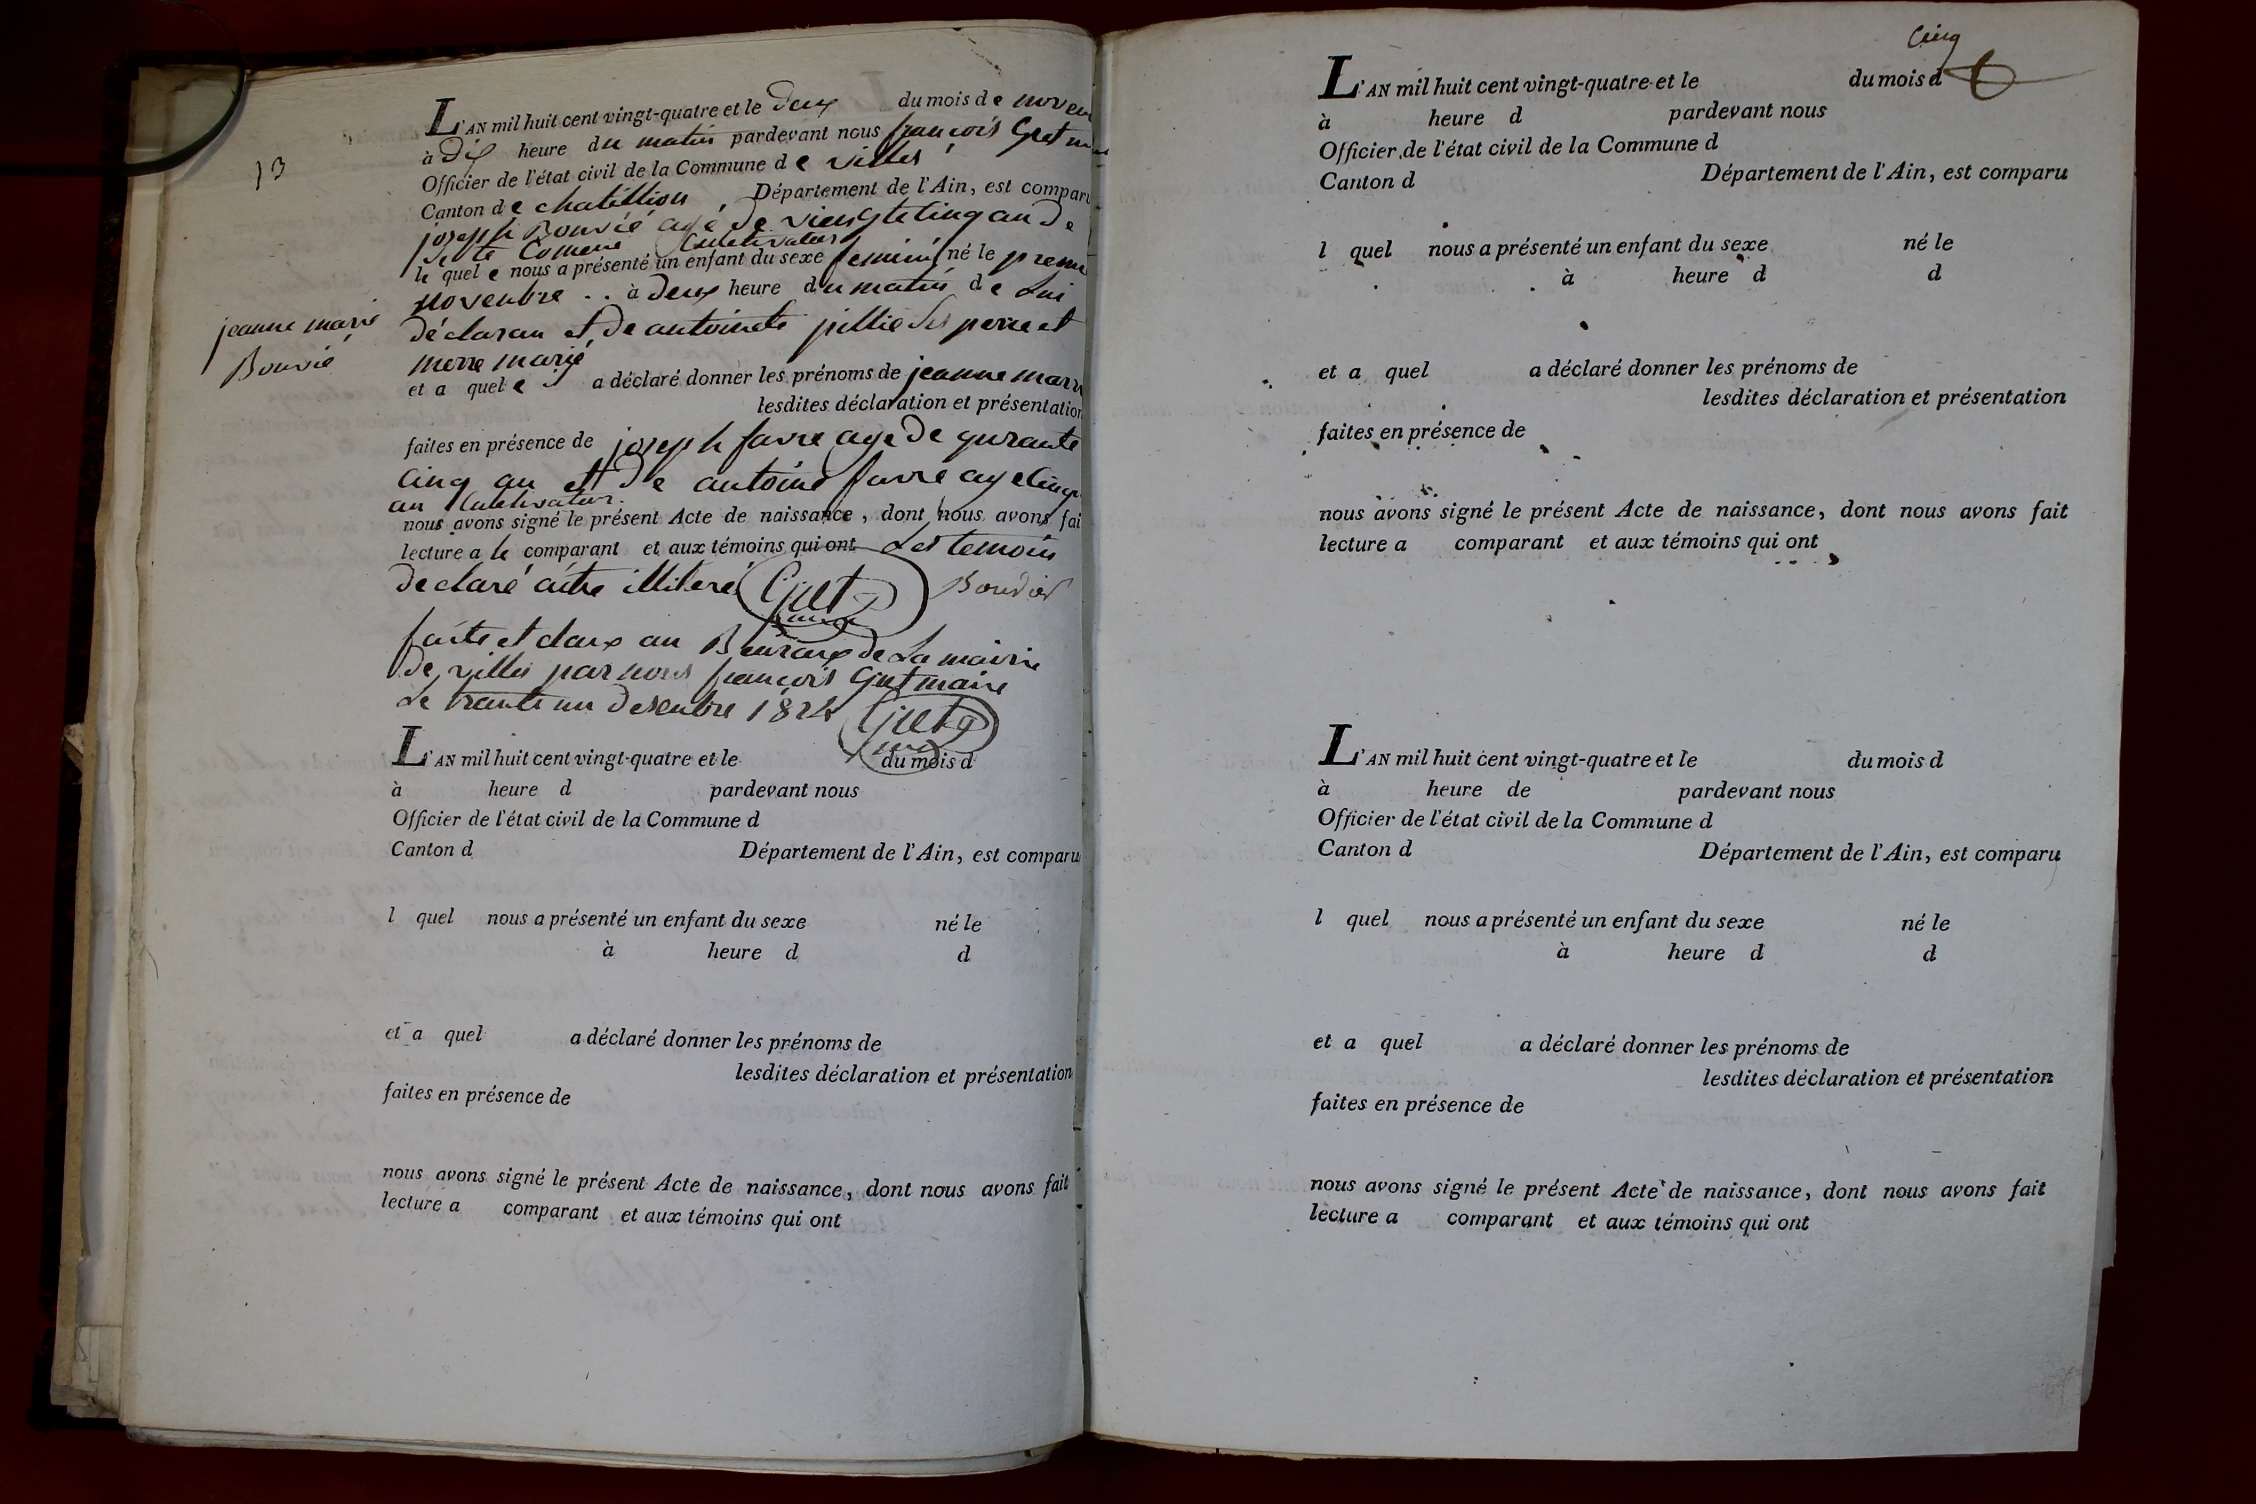 13
L'AN mil huit cent vingt-quatre et le deux du mois de novem
à dix heure du matin pardevant nous françois Gret
Officier de l'état civil de la Commune de villes
Canton de chatillion, Département de l'Ain, est comparu
joseph Bouvié agé de viengtetinq an de
Comene Cultivateur
le quel e nous a présenté un enfant du sexe feminin né le premie
novenbre .. à deux heure du matin de Lui
déclaran et de antoinete pillie Ses perre et
jeanne marie
Bouvié
merre marié
et a quel e a déclaré donner les prénoms de jeanne marie
lesdites déclaration et présentation
faites en présence de joseph favre age de qurante
Cinq an et de antoine favre age Cinq
an Cultivatur.
nous avons signé le présent Acte de naissance, dont nous avons fai
lecture a le comparant et aux témoins qui ont Les temoin
declaré aitre illiteré Gret Bouvier
faite et claux au Beuraux de La mairie
de villes par nous françois Gret maire
Le trante un desenbre 1824 Gret
L'AN mil huit cent vingt-quatre et le du mois d
à heure d pardevant nous
Officier de l'état civil de la Commune d
Canton d Département de l'Ain, est comparu
l quel nous a présenté un enfant du sexe né le
à heure d d
et a quel a déclaré donner les prénoms de
lesdites déclaration et présentation
faites en présence de
nous avons signé le présent Acte de naissance, dont nous avons fait
lecture a comparant et aux témoins qui ont
Cinq
L'AN mil huit cent vingt-quatre et le du mois d
à heure d pardevant nous
Officier de l'état civil de la Commune d
Canton d Département de l'Ain, est comparu
l quel nous a présenté un enfant du sexe né le
à heure d d
et a quel a déclaré donner les prénoms de
lesdites déclaration et présentation
faites en présence de
nous avons signé le présent Acte de naissance, dont nous avons fait
lecture a comparant et aux témoins qui ont
L'AN mil huit cent vingt-quatre et le du mois d
à heure de pardevant nous
Officier de l'état civil de la Commune d
Canton d Département de l'Ain, est comparu
l quel nous a présenté un enfant du sexe né le
à heure d d
et a quel a déclaré donner les prénoms de
lesdites déclaration et présentation
faites en présence de
nous avons signé le présent Acte de naissance, dont nous avons fait
lecture a comparant et aux témoins qui ont